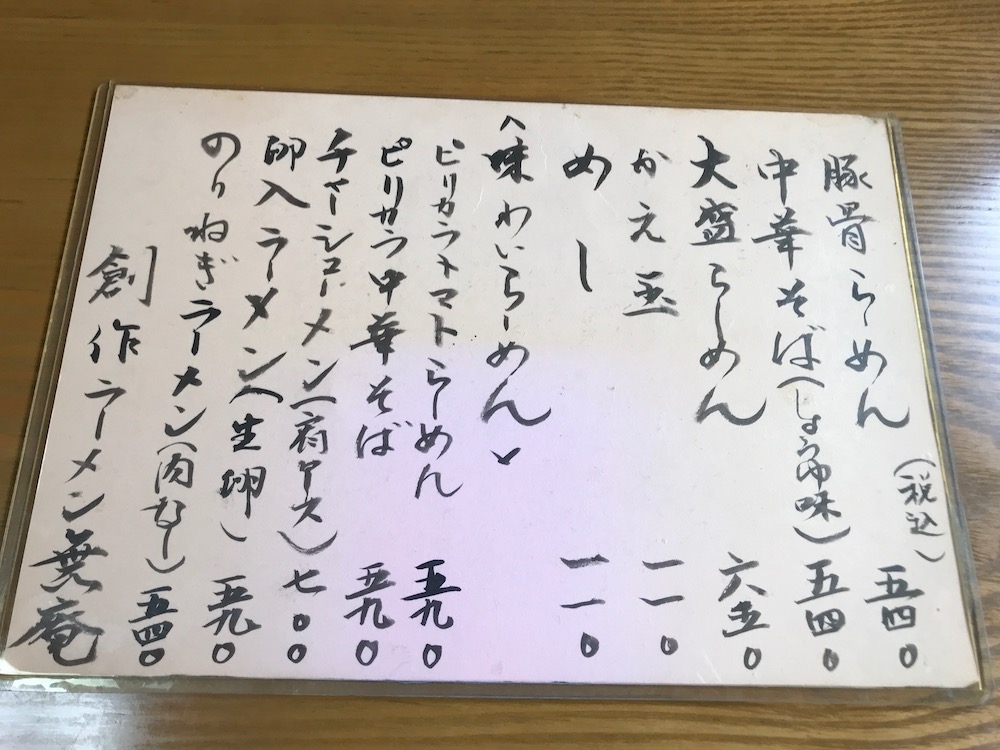 豚骨らーめん (税込) 五四〇
中華そば(しょうゆ味) 五四〇
大盛らーめん 六五〇
かえ玉 一一〇
めし 一一〇
〈味わいらーめん〉
ピリカラトマトらーめん 五九〇
ピリカラ中華そば 五九〇
チャーシューメン( 七〇〇
卵入ラーメン(生卵) 五九〇
のりねぎラーメン(肉なし) 五四〇
創作ラーメン 無庵